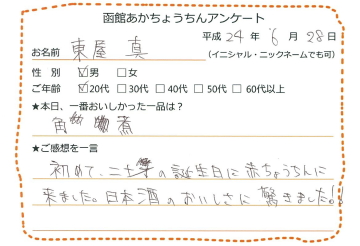 函館あかちょうちんアンケート
平成 24 年 6 月 28 日
お名前 東屋 真 (イニシャル・ニックネームでも可)
性 別 ☑男 □女
ご年齢 ☑20代 □30代 □40代 □50代 □60代以上
★本日、一番おいしかった一品は?
角煮
★ご感想を一言
初めて、二十の誕生日に赤ちょうちんに
来ました。日本酒のおいしさに驚きました!!